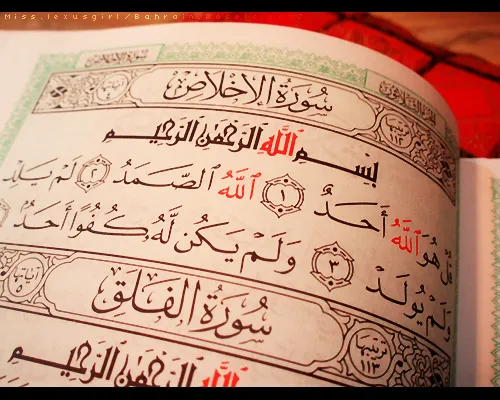 Miss.lexusgirl/Bahrain
سُورَةُ الإِخْلَاصِ
تَرتيبها ١١٢
بِسْمِ ٱللَّهِ ٱلرَّحْمَٰنِ ٱلرَّحِيمِ
قُلْ هُوَ ٱللَّهُ أَحَدٌ ١ ٱللَّهُ ٱلصَّمَدُ ٢ لَمْ يَلِدْ
وَلَمْ يُولَدْ ٣ وَلَمْ يَكُن لَّهُۥ كُفُوًا أَحَدٌ
تَرتيبها ١١٣
سُورَةُ الفَلَقِ
آيَاتها ٥
بِسْمِ ٱللَّهِ ٱلرَّحْمَٰنِ ٱلرَّحِيمِ